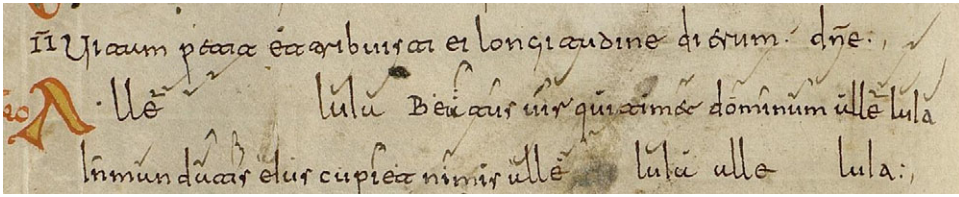 Uitam petiit et tribuisti ei longitudine dierum. dñe:,
Allē luia Beatus uir qui timet dominum allē luia
In mandatis eius cupiet nimis allē luia alle luia:,